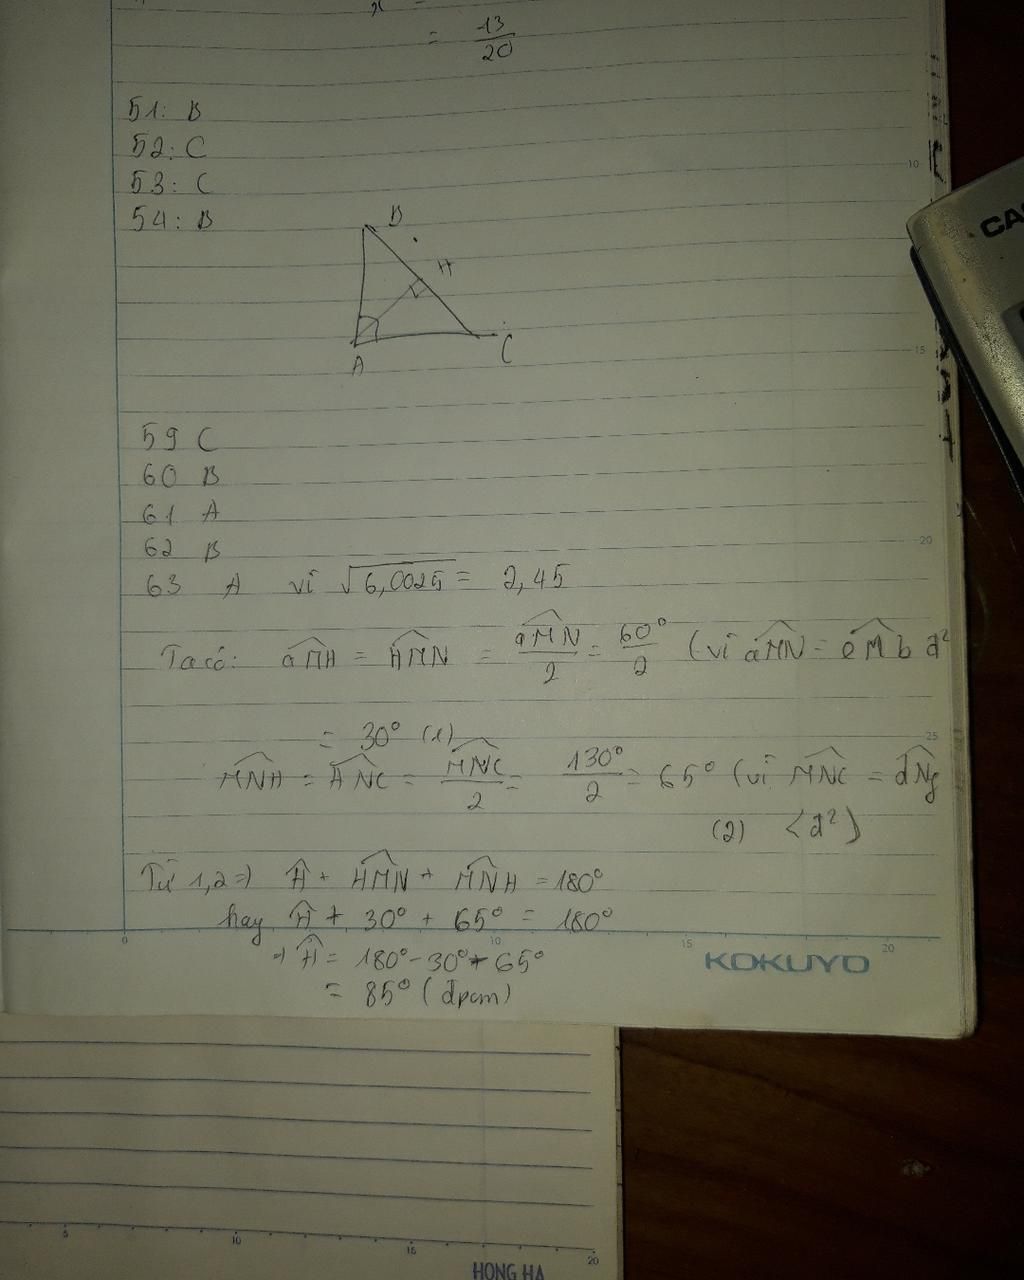 = 13/20
51: B
52: C
53: C
54: B
B
H
A
C
59 C
60 B
61 A
62 B
63 A vì √6,0025 = 2,45
Ta có: aMH = HMN = aMN/2 = 60°/2 (vì aMN = eMb đ²
= 30° (1)
MNH = HNC = MNC/2 = 130°/2 = 65° (vì MNC = dNg
(2) <đ²)
Từ 1,2 => Ĥ + HMN + MNH = 180°
hay Ĥ + 30° + 65° = 180°
Ĥ = 180° - 30° + 65°
= 85° (đpcm)
0 10 15 20
KOKUYO
10
15
20
25
CAS
5 10 15 20
HONG HA